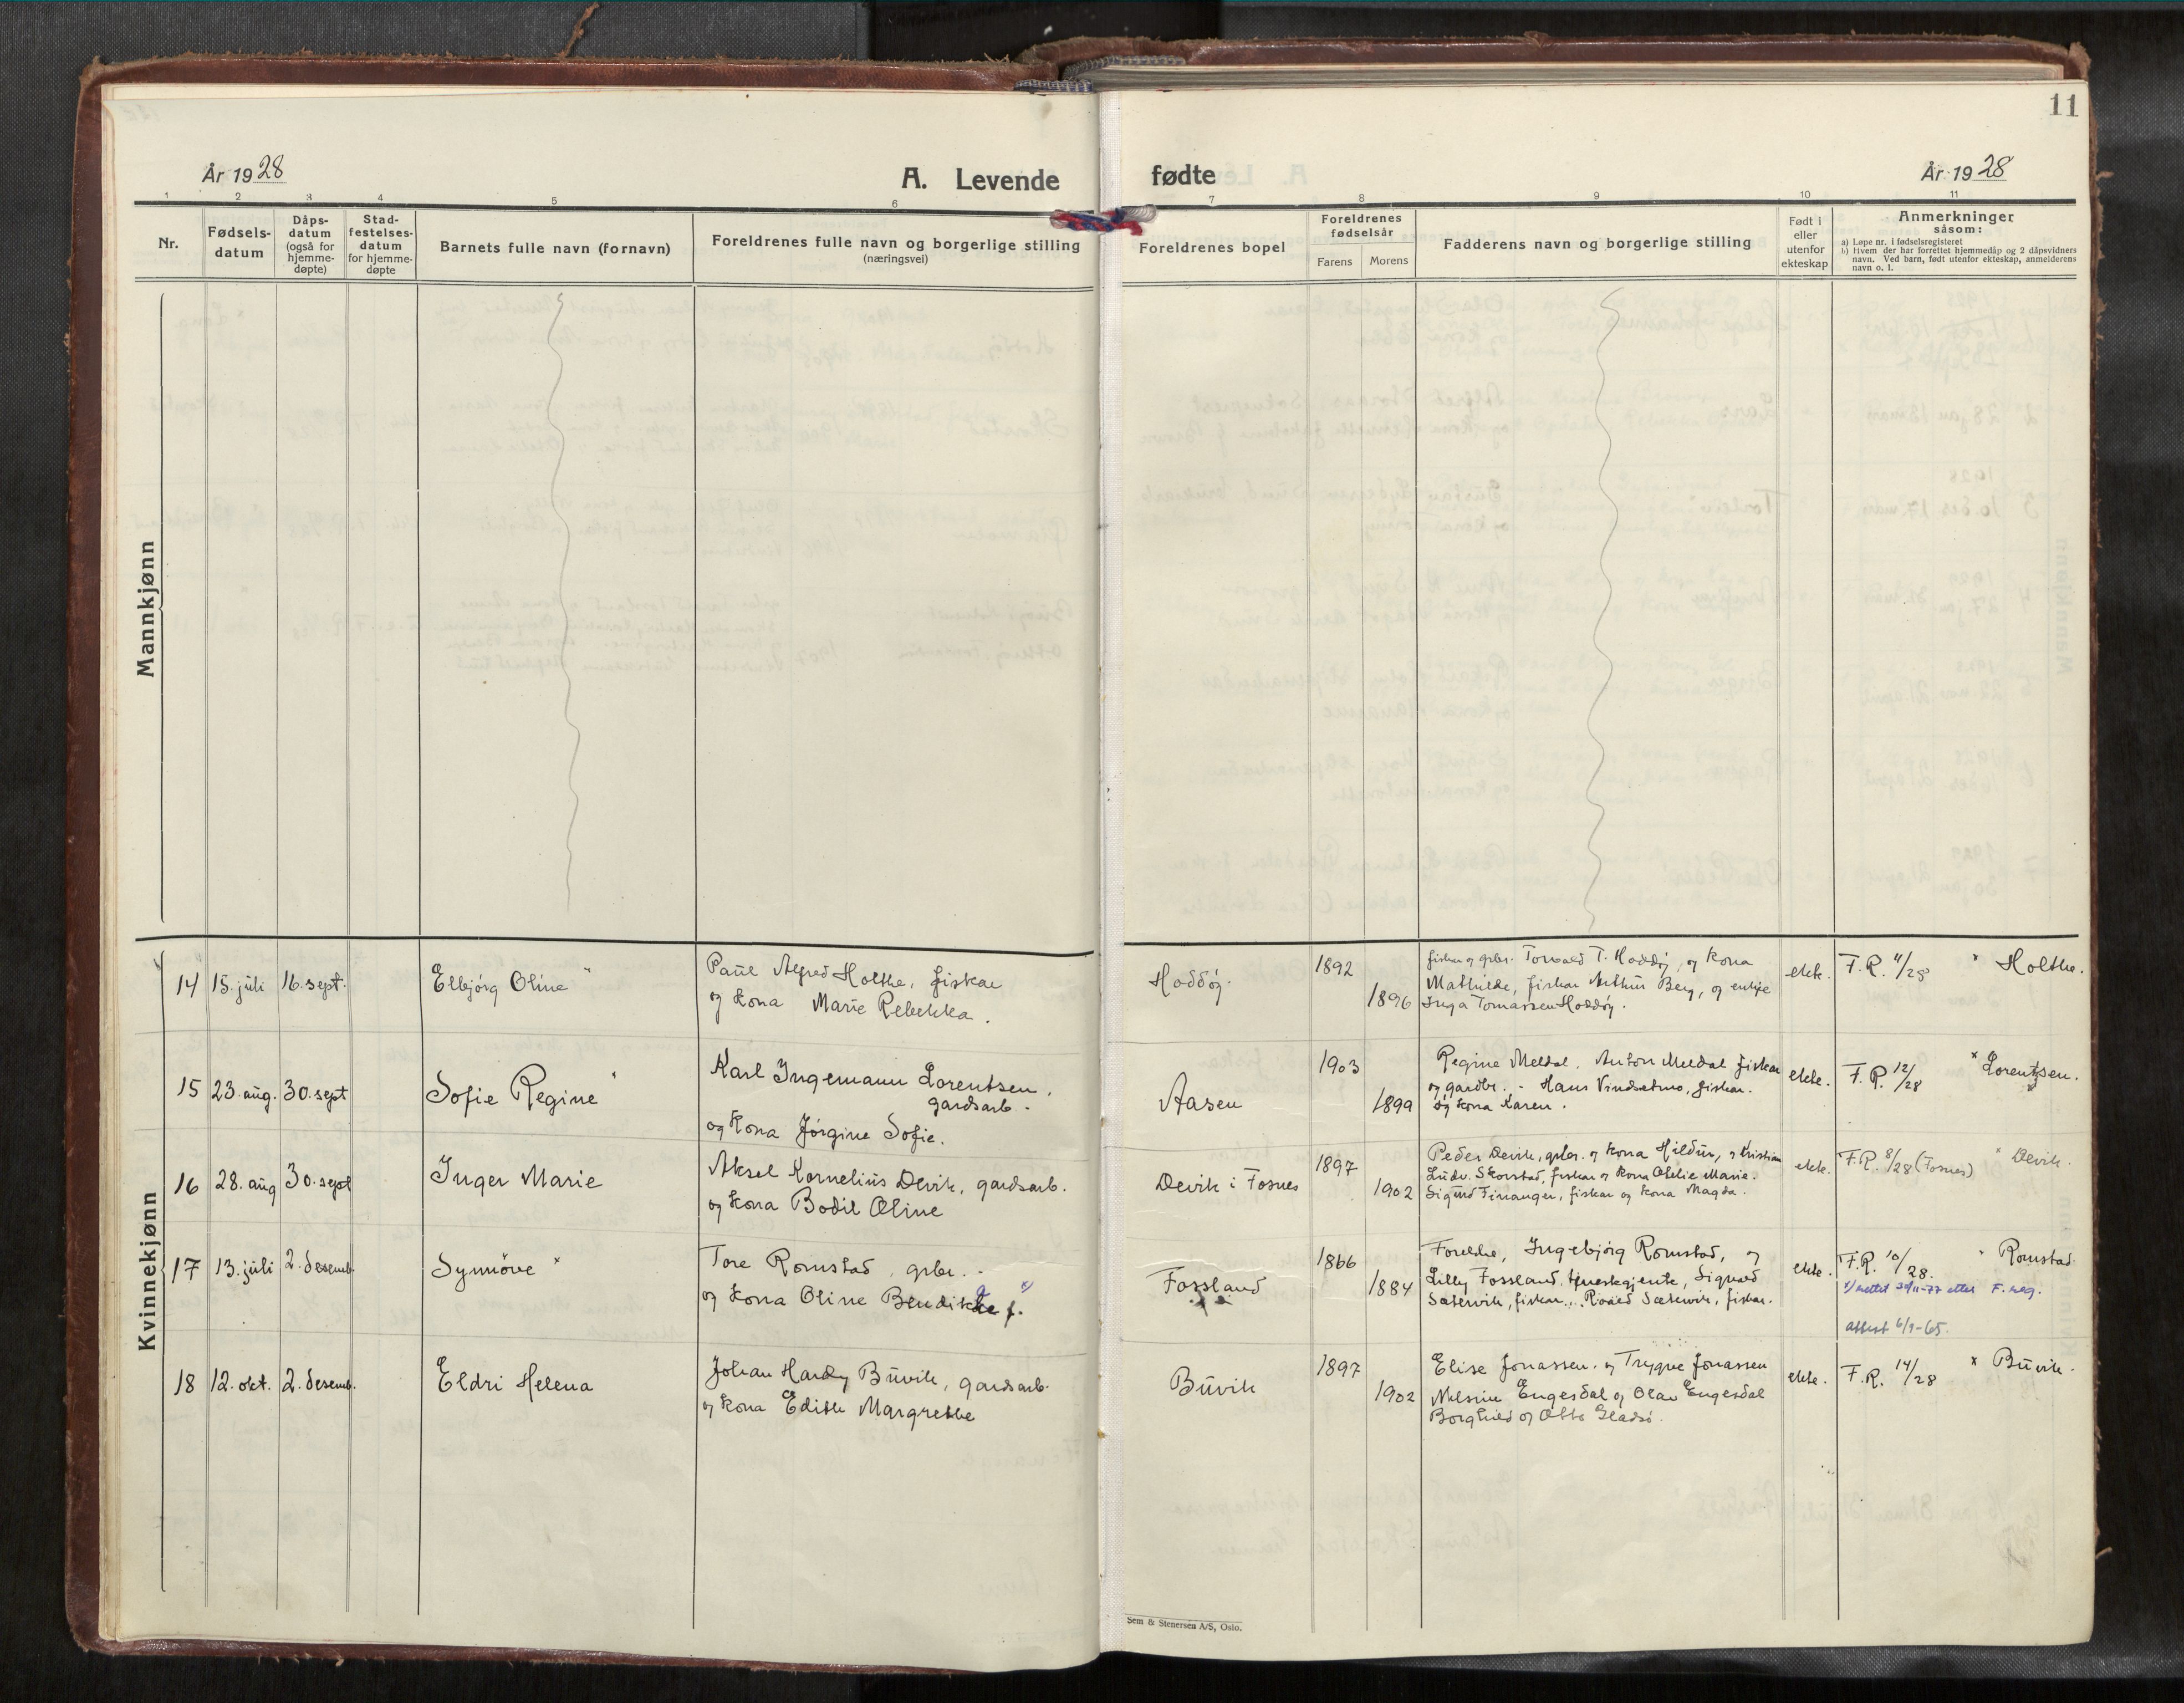 11
År 1928
A. Levende
fødte
År 1928
1 2 3 4 5 6 7 8 9 10 11
Nr.
Fødsels-
datum
Dåps-
datum
(også for
hjemme-
døpte)
Stad-
festelses-
datum
for hjemme-
døpte
Barnets fulle navn (fornavn)
Foreldrenes fulle navn og borgerlige stilling
(næringsvei)
Foreldrenes bopel
Foreldrenes
fødselsår
Farens Morens
Fadderens navn og borgerlige stilling
Født i
eller
utenfor
ekteskap
Anmerkninger
såsom:
a) Løpe nr. i fødselsregisteret
b) Hvem der har forrettet hjemmedåp og 2 dåpsvidners
navn. Ved barn, født utenfor ekteskap, anmelderens
navn o. l.
Mannkjønn
Kvinnekjønn
14 15. juli 16. sept. Elbjörg Oline
Paul Alfred Holthe, fiskar
og kona Marie Rebekka.
Hoddöy
1892
1896
fiskar og grbr. Torvald T. Hoddöy, og kona
Mathilde, fiskar Arthur Berg, og enkje
Inga Tomassen Hoddöy.
ekte. F.R. 11/28 Holthe.
15 23. aug. 30. sept Sofie Regine
Karl Ingemann Lorentsen,
gardsarb.
og kona Jörgine Sofie.
Aasen
1903
1899
Regine Meldal, Anton Meldal fiskar
og gardbr. - Hans Vindsetmo, fiskar.
og kona Karen.
ekte. F.R. 12/28 Lorentsen.
16 28. aug 30. sept Inger Marie
Aksel Kornelius Devik, gardsarb.
og kona Bodil Oline
Devik i Fosnes
1897
1902
Peder Devik, grbr. og kona Hildur, og Kristian
Ludv. Skorstad, fiskar og kona Otelie Marie.
Sigurd Finanger, fiskar og kona Magda.
ekte. F.R. 8/28 (Fosnes) Devik.
17 13. juli 2. desemb. Synnöve
Tore Romstad, grbr.
og kona Oline
Fossland
1866
1884
Foreldre, Ingebjörg Romstad, og
Lilly Fossland, tjeneskjente, Sigvald
Sætervik, fiskar, Roald Sætervik, fiskar.
ekte. F.R. 10/28. Romstad
x) rettet 30/11-77 etter F. reg.
attest 6/9-65.
18 12. okt. 2. desemb. Eldri Helena
Johan Hardy Buvik, gardsarb.
og kona Edith Margrethe
Buvik
1897
1902
Elise Jonassen. og Trygve Jonassen
Nelsine Engesdal og Olav Engesdal
Borghild og Otto Gladsö.
ekte. F.R. 14/28 Buvik.
Sem & Stenersen A/S, Oslo.